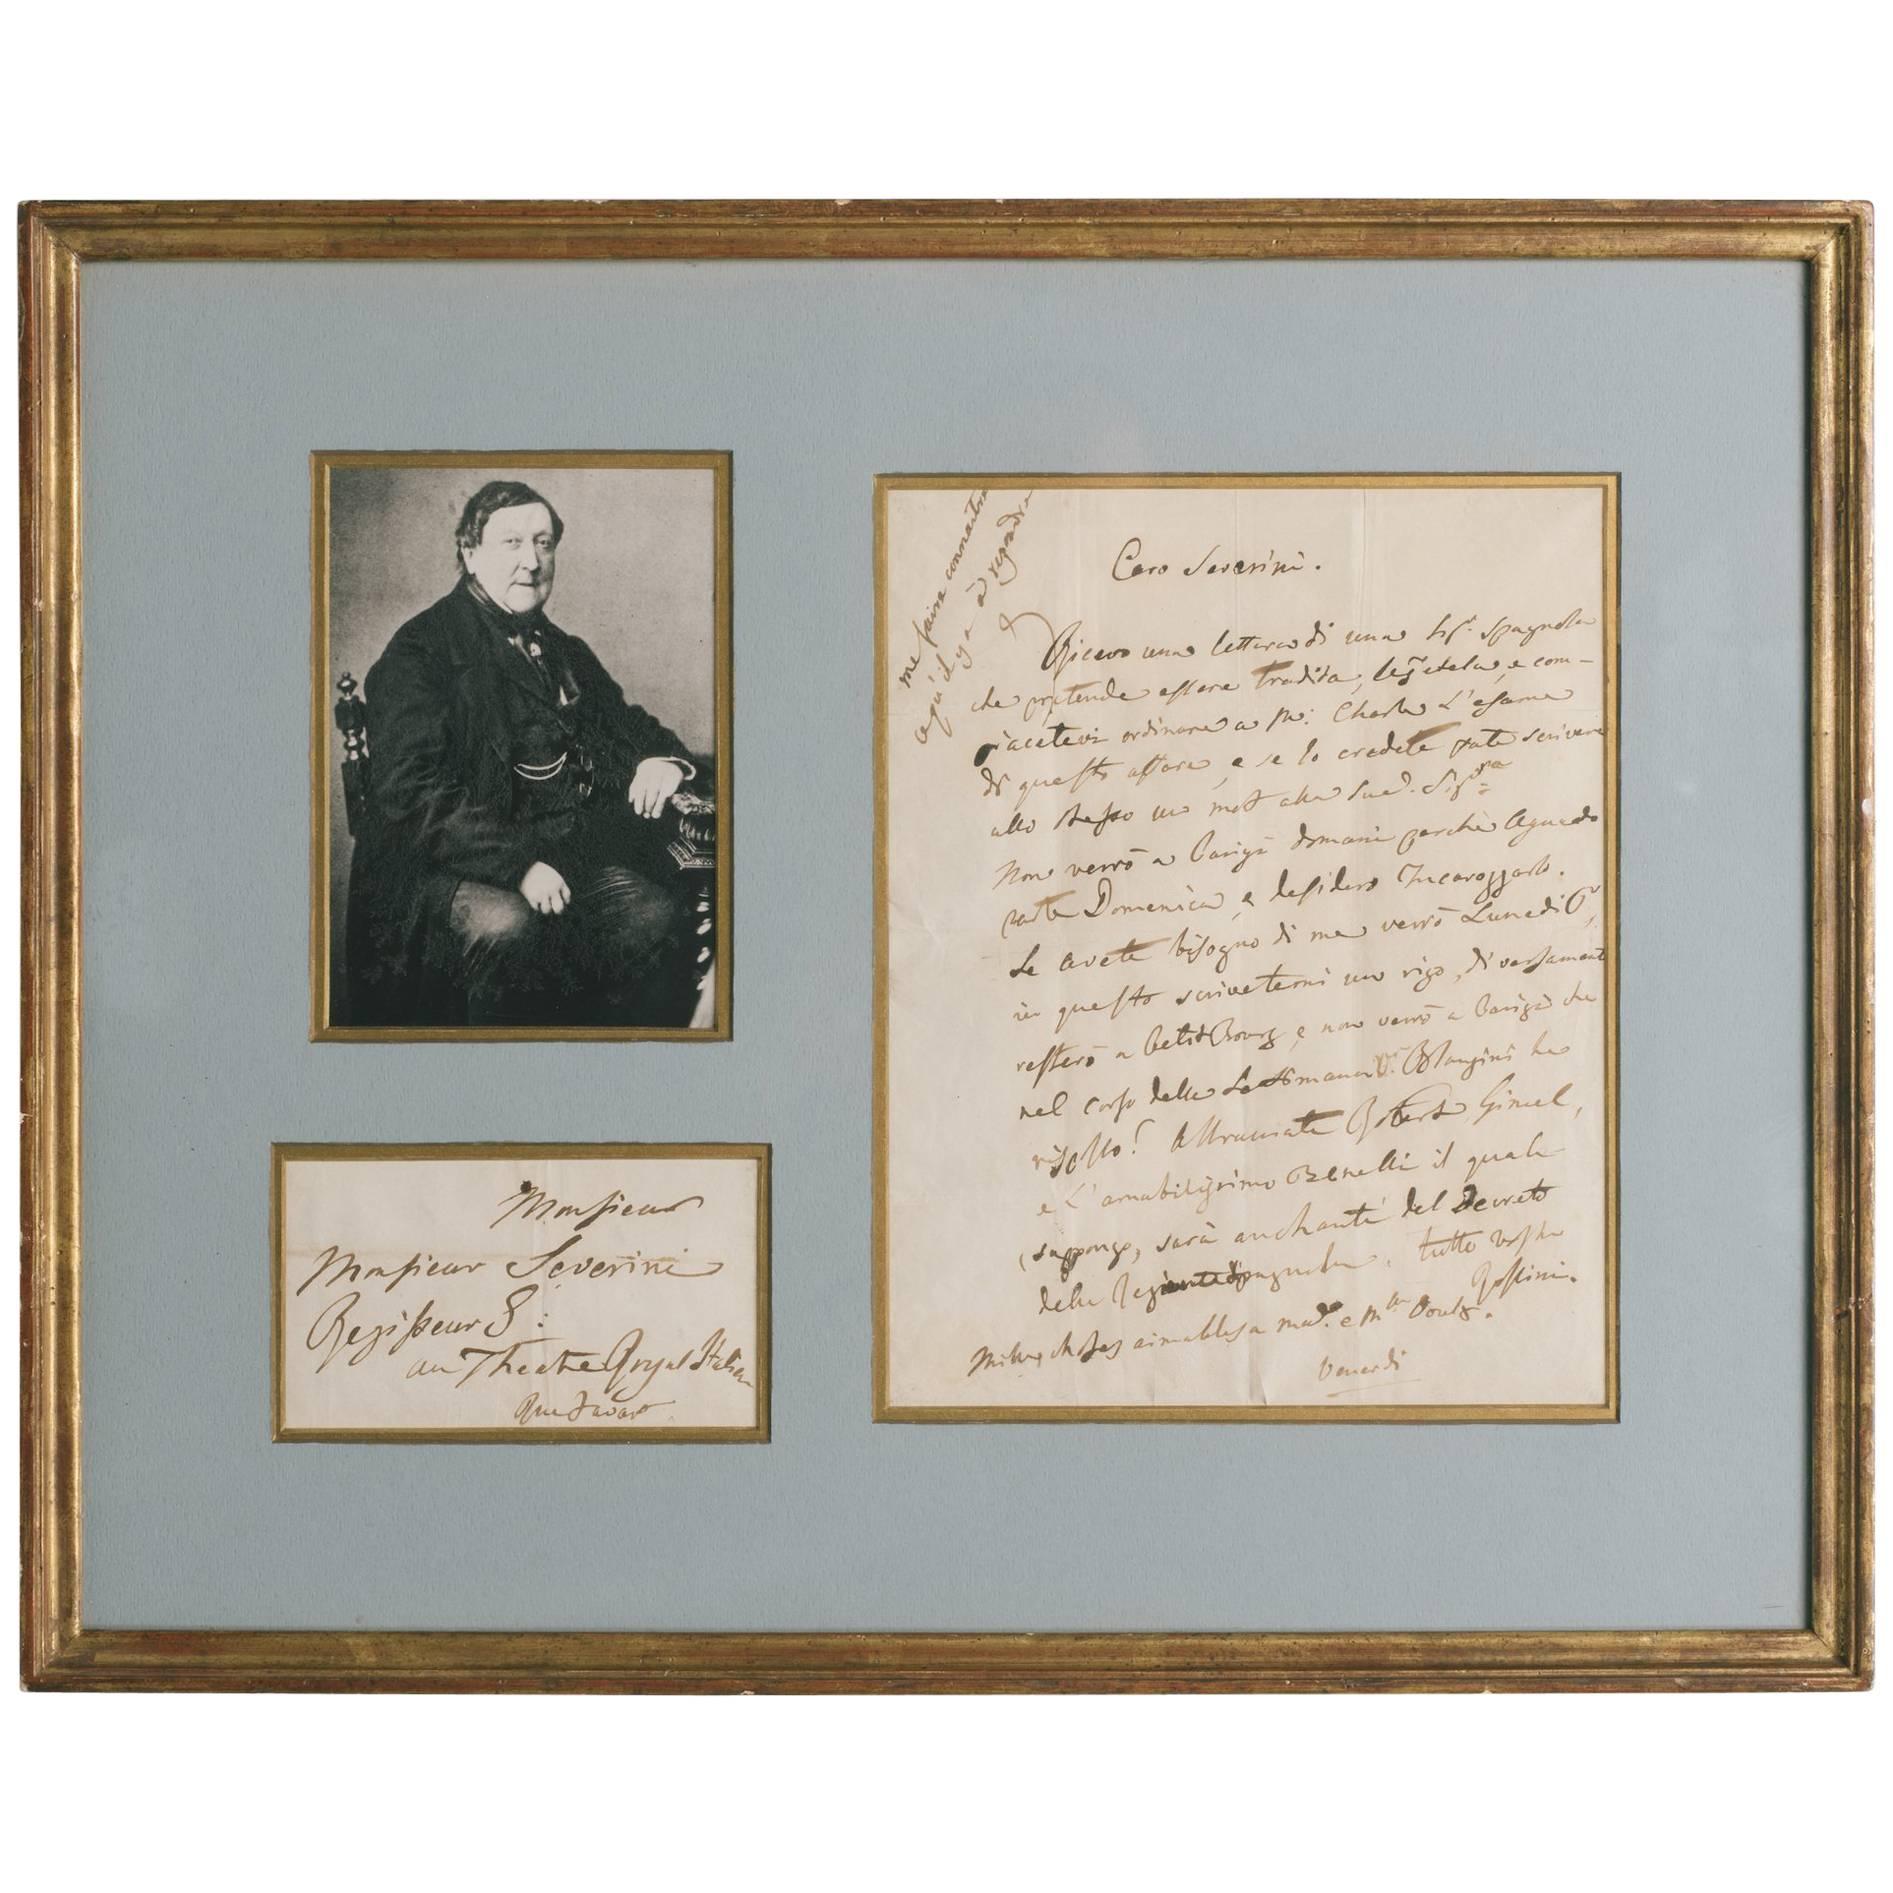 Monsieur
Monsieur Severini
Regisseur G:
au Theatre Royal Italien
Rue Favart
me faire connaitre
ce qu'il y a à repondre
Caro Severini.
Ricevo una lettera di una Sig.a Spagnola
che pretende essere tradita, leggetela, e com-
piacetevi ordinare a Mr: Charle L'esame
di questo affare, e se lo credete fate scrivere
allo stesso un mot alla sud. Sig.ra
Non verrò a Parigi domani perchè Aguado
parte Domenica, e desidero Incarozzarlo.
Se avete bisogno di me verrò Lunedi,
in questo scrivetemi un rigo, diversamente
resterò a PetitBourg, e non verrò a Parigi che
nel corso della Settimana V. Blangini ha
risolto? Abbracciate Robert, Gimel,
e L'amabilissimo Benelli il quale
(suppongo) sarà enchanté del Decreto
della Spagnola. tutto vostro
Rossini.
Mille choses aimables a Mad. e Mlle
Venerdi